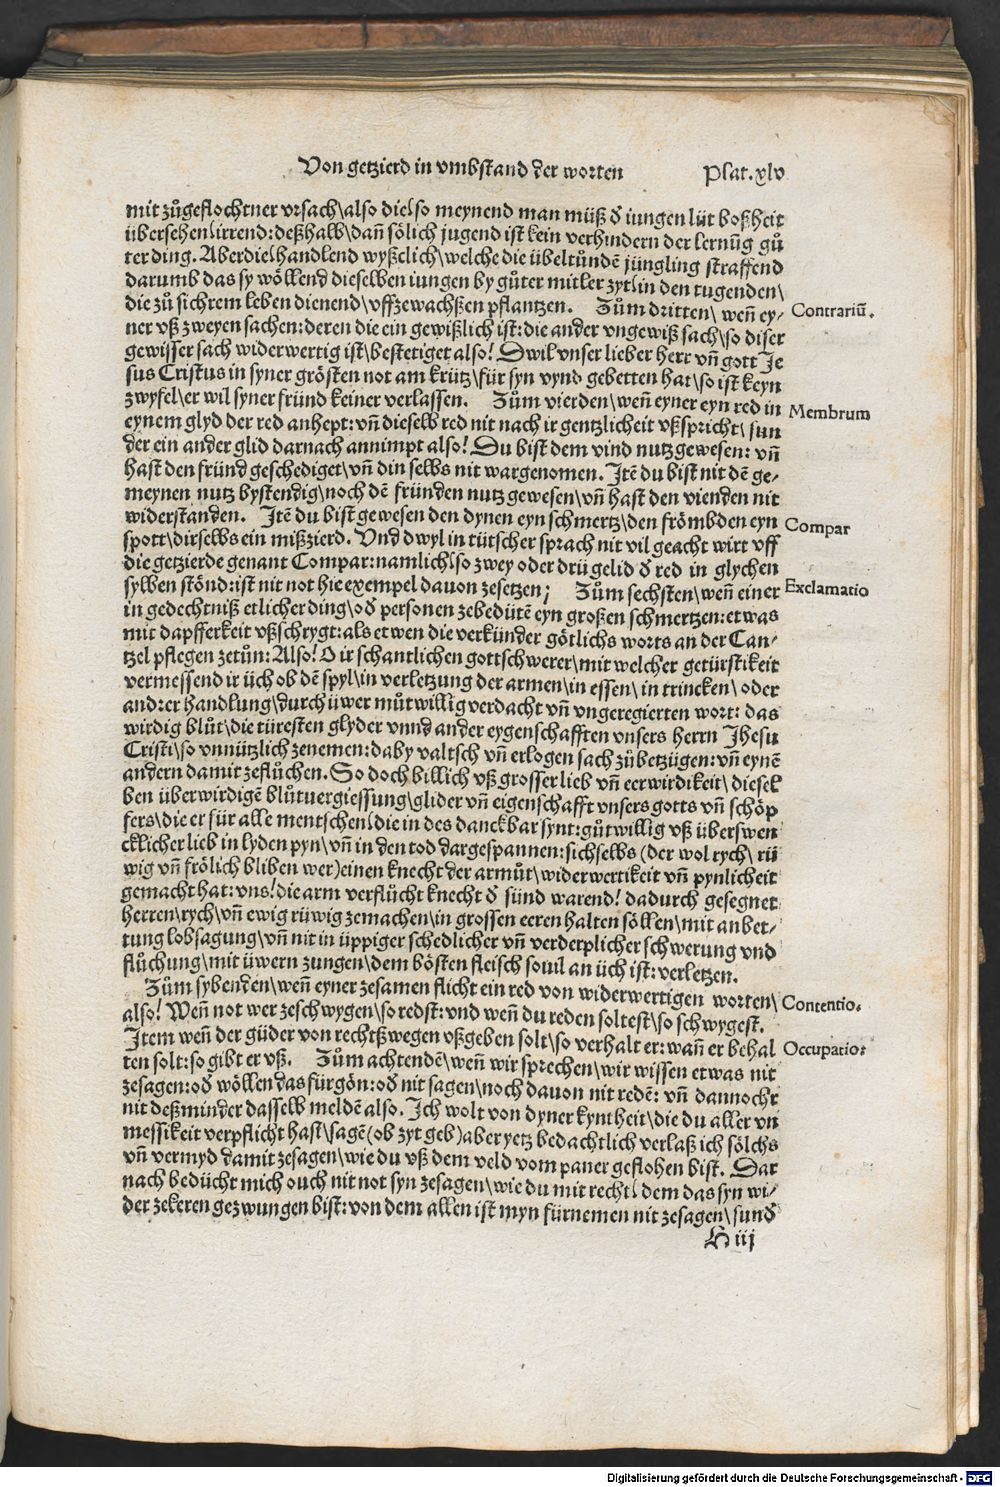 Von getzierd in vmbstand der worten Plat.xlv
mit zůgeflochtner vrsach\also die/so meynend man müß đ iungen lüt boßheit
übersehen/irrend:deßhalb\dañ sölich jugend ist kein verhindern der lernũg gů
ter ding. Aber die/handlend wyßclich\welche die übeltůndẽ jüngling straffend
darumb das sy wöllend dieselben iungen by gůter mitler zyt/in den tugenden\
die zů sichrem leben dienend\vffzewachßen pflantzen. Zům dritten\weñ ey⸗
Contrariũ.
ner vß zweyen sachen:deren die ein gewißlich ist:die ander vngewiß sach\so diser
gewisser sach widerwertig ist\bestetiget also! Dwil vnser lieber herr vñ gott Je
sus Cristus in syner grösten not am krütz\für syn vynd gebetten hat\so ist keyn
zwyfel\er wil syner fründ keiner verlassen. Zům vierden\weñ eyner eyn red in
Membrum
eynem glyd der red anhept:vñ dieselb red nit nach ir gentzlicheit vßspricht\sun
der ein ander glid darnach annimpt also! Du bist dem vind nutz gewesen: vñ
hast den fründ geschediget\vñ din selbs nit wargenomen. Jtẽ du bist nit dẽ ge⸗
meynen nutz bystendig\noch dẽ fründen nutz gewesen\vñ hast den vienden nit
widerstanden. Jtẽ du bist gewesen den dynen eyn schmertz\den frömbden eyn
Compar
spott\dir selbs ein mißzierd. Vnd dwyl in tütscher sprach nit vil geacht wirt vff
die getzierde genant Compar:namlich/so zwey oder drü gelid đ red in glychen
sylben stönd:ist nit not hie exempel dauon zesetzen; Zům sechsten\weñ einer
Exclamatio
in gedechtniß etlicher ding\ođ personen zebedütẽ eyn großen schmertzen:etwas
mit dapfferkeit vßschrygt:als etwen die verkünder götlichs worts an der Can⸗
tzel pflegen zetůn:Also! O ir schantlichen gottschwerer\mit welcher getürstikeit
vermessend ir üch ob dẽ spyl\in verletzung der armen\in essen\in trincken\oder
andrer handlung\durch üwer můtwillig verdacht vñ vngeregierten wort: das
wirdig blůt\die türesten glyder vnnd ander eygenschafften vnsers herrn Jhesu
Cristi\so vnnützlich zenemen:daby valtsch vñ erlogen sach zů betzügen:vñ eynẽ
andern damit zeflůchen. So doch billich vß grosser lieb vñ eerwirdikeit\diesel
ben überwirdigẽ blůtuergiessung\glider vñ eigenschafft vnsers gotts vñ schöp
fers\die er für alle mentschen/die in des danckbar synt:gůtwillig vß überswen
cklicher lieb in lyden pyn\vñ in den tod dargespannen:sich selbs (der wol rych\rü
wig vñ frölich bliben wer)einen knecht der armůt\widerwertikeit vñ pynlicheit
gemacht hat:vns!die arm verflůcht knecht đ sünd warend! dadurch gesegnet
herren\rych\vñ ewig rüwig zemachen\in grossen eeren halten söllen\mit anbet⸗
tung lobsagung\vñ nit in üppiger schedlicher vñ verderplicher schwerung vnd
flůchung\mit üwern zungen\dem bösten fleisch souil an üch ist:verletzen.
Zům sybenden\weñ eyner zesamen flicht ein red von widerwertigen worten\
Contentio.
also! Weñ not wer zeschwygen\so redst:vnd weñ du reden soltest\so schwygest.
Jtem weñ der güder von rechtßwegen vßgeben solt\so verhalt er:wañ er behal
Occupatio:
ten solt:so gibt er vß. Zům achtendẽ\weñ wir sprechen\wir wissen etwas nit
zesagen:ođ wöllen das fürgön:ođ nit sagen\noch dauon nit redẽ: vñ dannocht
nit deßminder dasselb meldẽ also. Jch wolt von dyner kyntheit\die du aller vn
messikeit verpflicht hast\sagẽ(ob zyt geb)aber yetz bedachtlich verlaß ich sölchs
vñ vermyd damit zesagen\wie du vß dem veld vom paner geflohen bist. Dar
nach bedücht mich ouch nit not syn zesagen\wie du mit recht/dem das syn wi⸗
der zekeren gezwungen bist:von dem allen ist myn fürnemen nit zesagen\sunđ
H iij
Digitalisierung gefördert durch die Deutsche Forschungsgemeinschaft - DFG